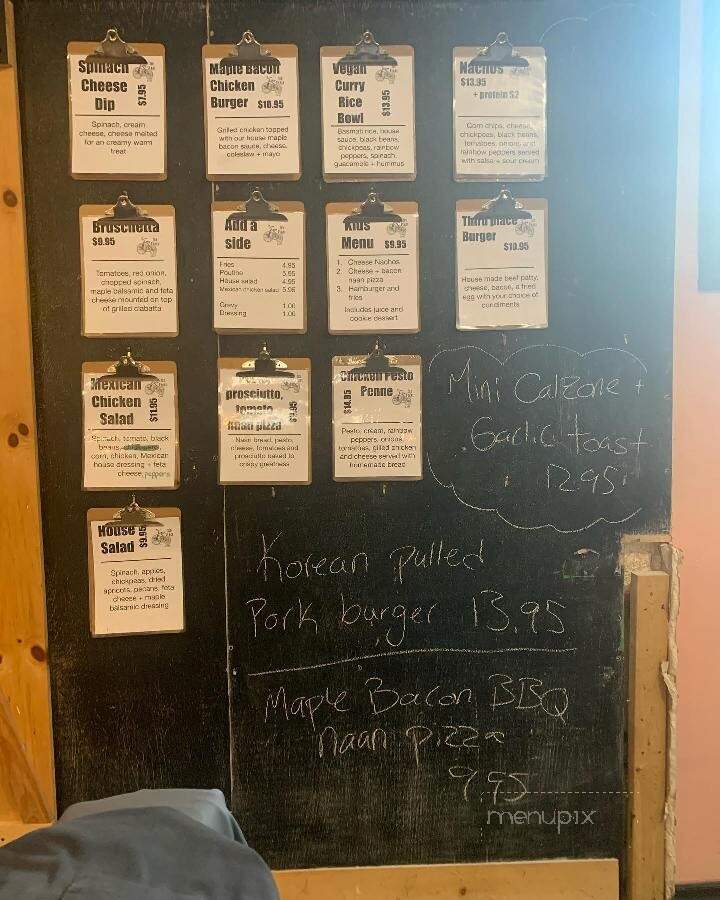 Spinach
Cheese
Dip
$7.95
Spinach, cream
cheese, cheese melted
for an creamy warm
treat
Maple Bacon
Chicken
Burger $10.95
Grilled chicken topped
with our house maple
bacon sauce, cheese,
coleslaw + mayo
Vegan
Curry
Rice
Bowl
$13.95
Basmati rice, house
sauce, black beans,
chickpeas, rainbow
peppers, spinach,
guacamole + hummus
Nachos
$13.95
+ protein $2
Corn chips, cheese,
chickpeas, black beans,
tomatoes, onions, and
rainbow peppers served
with salsa + sour cream
Bruschetta
$9.95
Tomatoes, red onion,
chopped spinach,
maple balsamic and feta
cheese mounted on top
of grilled ciabatta
Add a
side
Fries 4.95
Poutine 5.95
House salad 4.95
Mexican chicken salad 5.96
Gravy 1.00
Dressing 1.00
Kids
Menu $9.95
1. Cheese Nachos
2. Cheese + bacon
naan pizza
3. Hamburger and
fries
Includes juice and
cookie dessert
Third place
Burger
$10.95
House made beef patty,
cheese, bacon, a fried
egg with your choice of
condiments
Mexican
Chicken
Salad
$11.95
Spinach, tomato, black
beans,
corn, chicken, Mexican
house dressing + feta
cheese, peppers
prosciutto,
tomato
naan pizza
Naan bread, pesto,
cheese, tomatoes and
prosciutto baked to
crispy greatness
Chicken Pesto
Penne
$14.95
Pesto, cream, rainbow
peppers, onions,
tomatoes, grilled chicken
and cheese served with
homemade bread
Mini Calzone +
Garlic toast
12.95
House
Salad
$9.95
Spinach, apples,
chickpeas, dried
apricots, pecans, feta
cheese + maple
balsamic dressing
Korean pulled
Pork burger 13.95
Maple Bacon BBQ
naan pizza
9.95
menupix